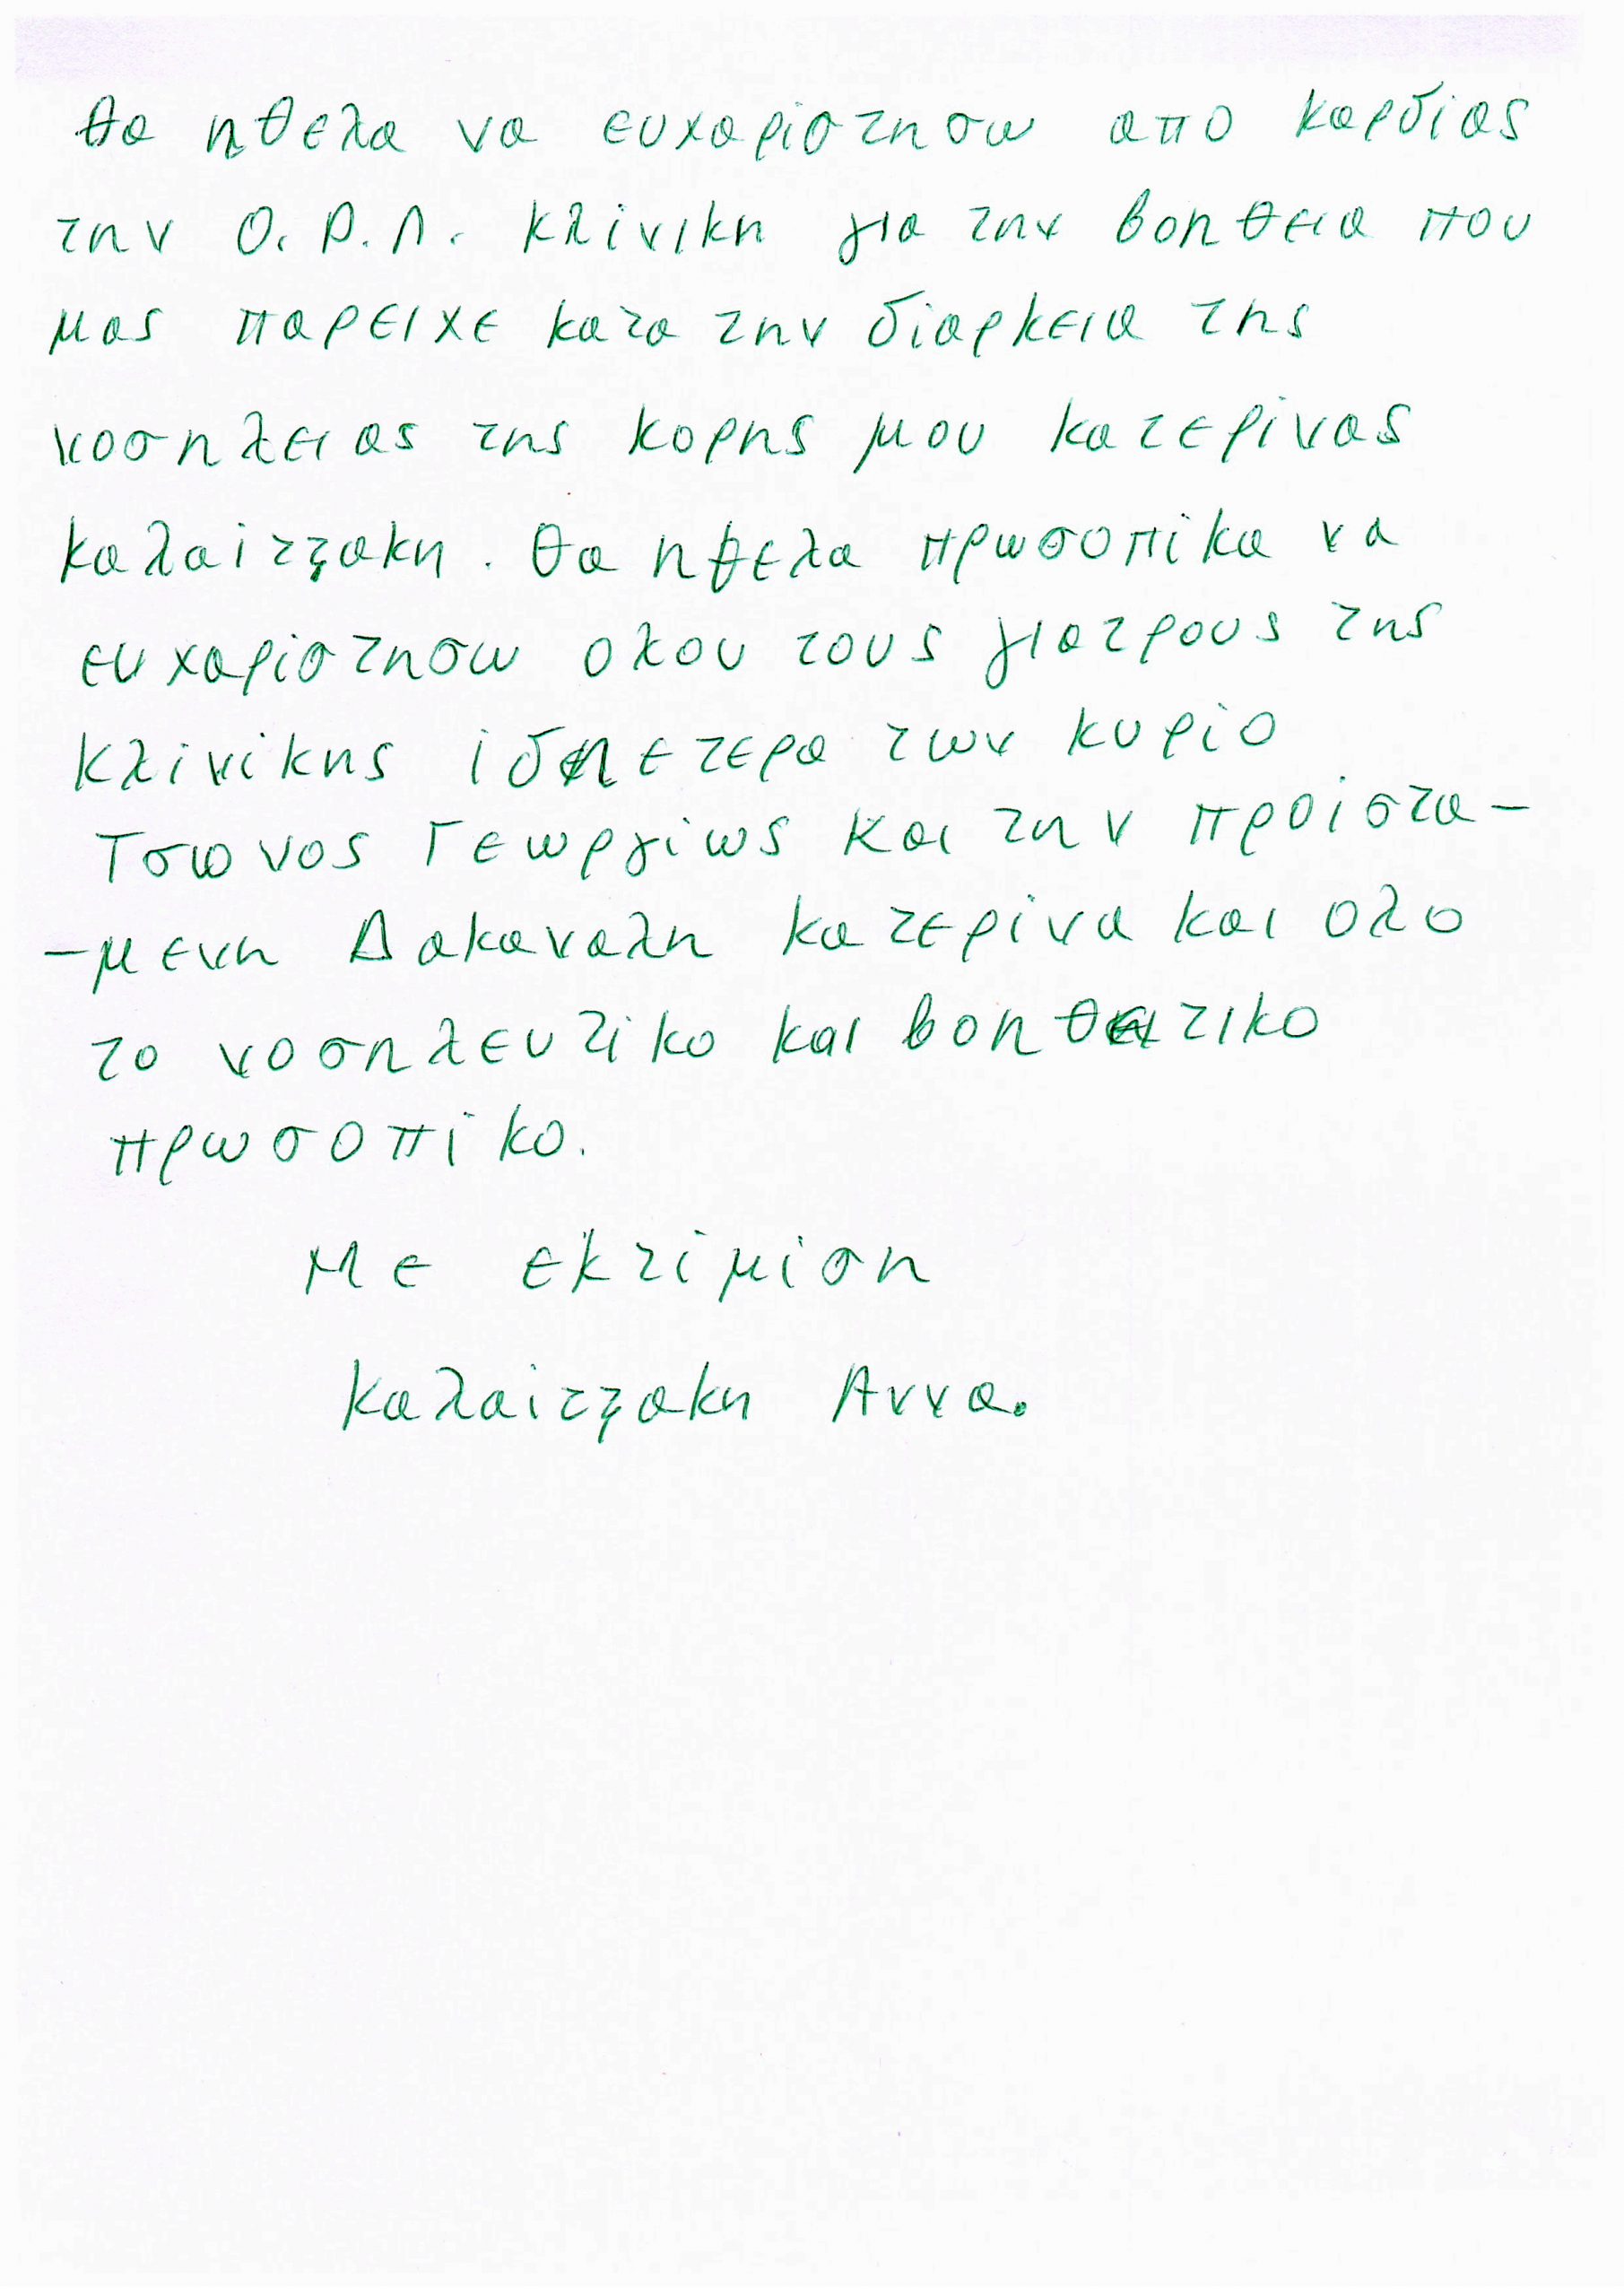 θα ηθελα να ευχαριστησω απο καρδιας
την Ο.Ρ.Λ. κλινικη για την βοηθεια που
μας παρειχε κατα την διαρκεια της
νοσηλειας της κορης μου κατερινας
καλαιτζακη. θα ηθελα πρωσοπικα να
ευχαριστησω ολου τους γιατρους της
κλινικης ιδιετερα των κυριο
Τσωνος Γεωργιως και την προιστα-
-μενη Δακαναλη κατερινα και ολο
το νοσηλευτικο και βοηθητικο
πρωσοπικο.
Με εκτιμιση
καλαιτζακη Αννα.